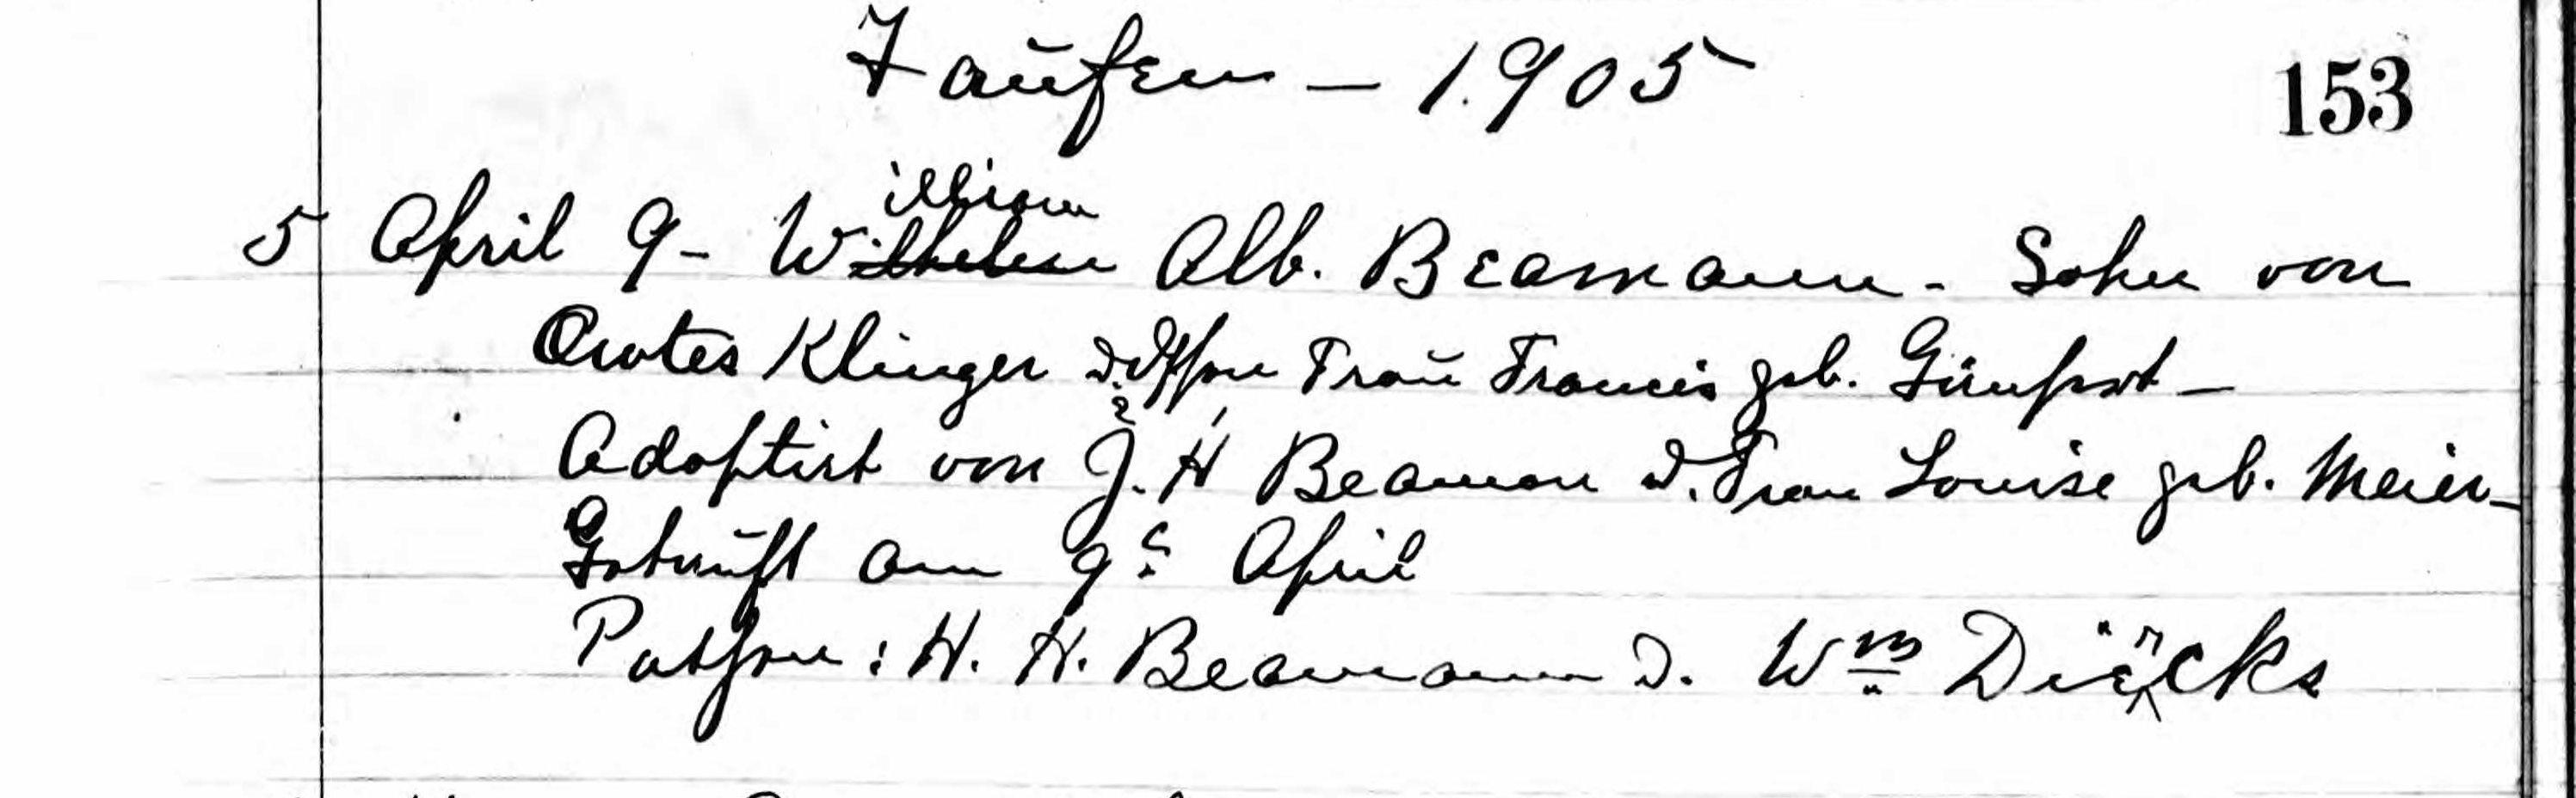 Taufen – 1905
153
illiam
5 April 9 – Wilhelm Alb. Beamann – Sohn von
Klinger Frau Francis geb.
Adoptirt von J. H. Beaman u. Frau Louise geb. Meier –
Getauft am 9. April
Pathen: H. H. Beamann u. Wm Diercks